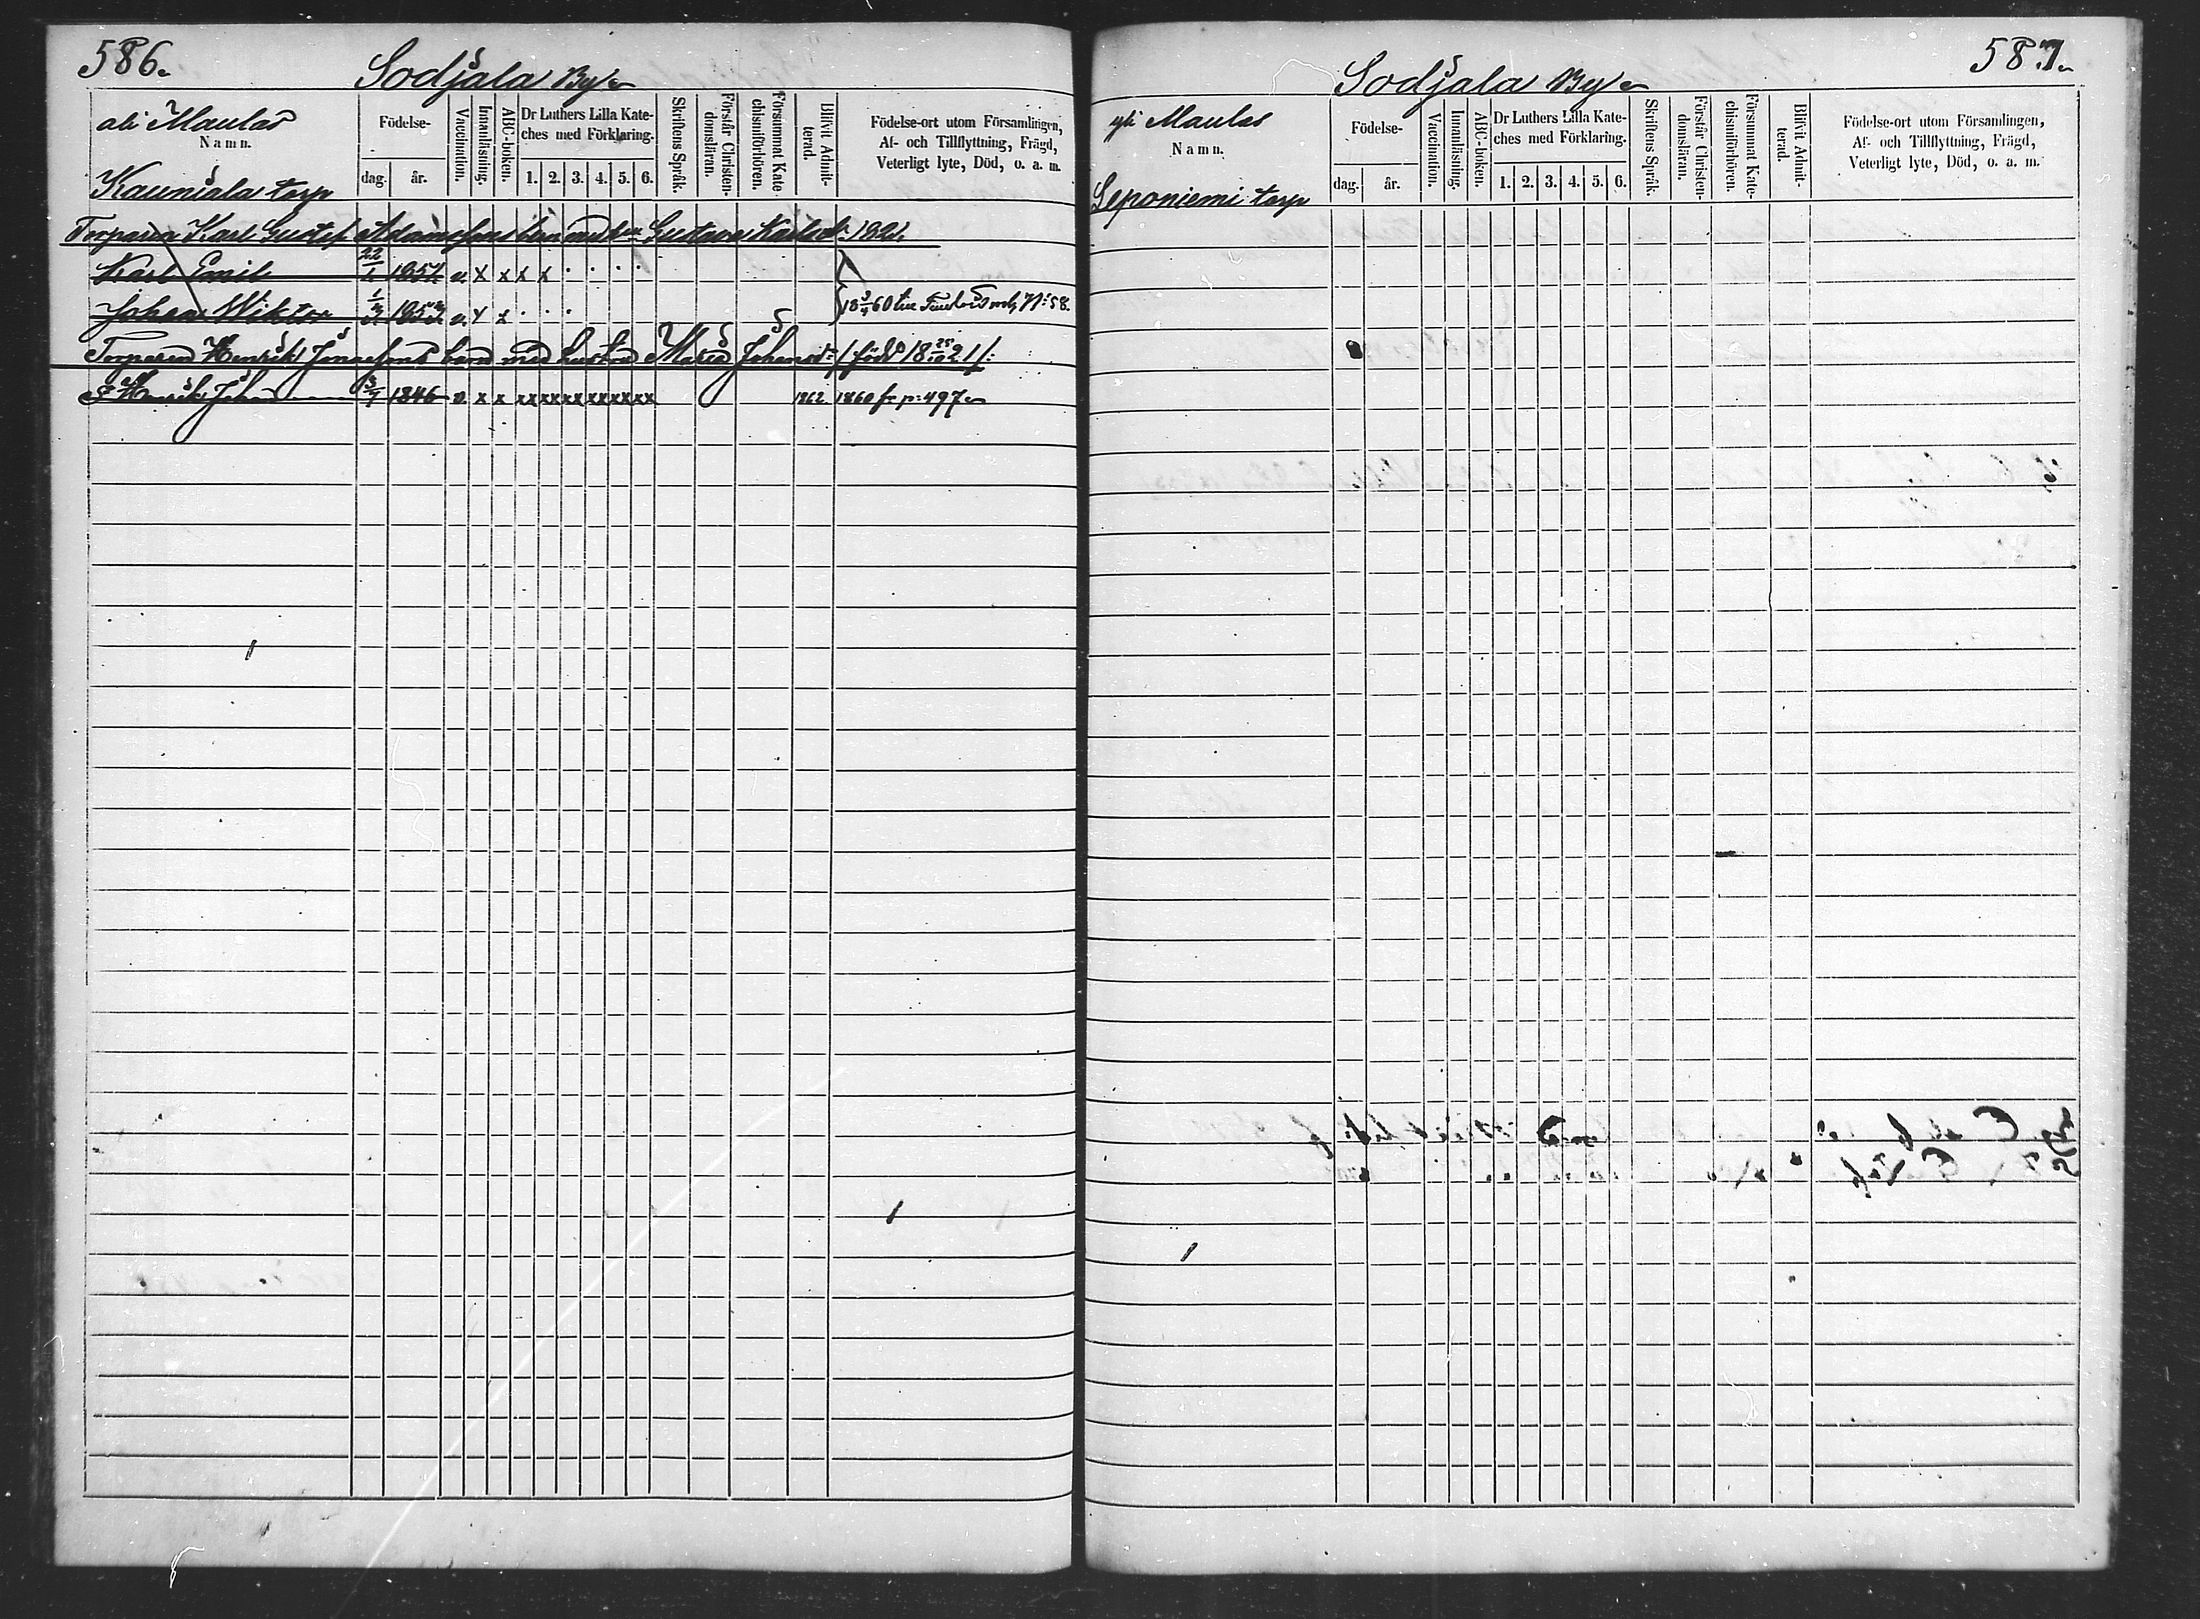 586.
Sodjala By
ali Maulas
Namn.
Kauniala torp
Födelse-
dag.
år.
Vaccination.
Innanläsning.
ABC-boken.
Dr Luthers Lilla Kate-
ches med Förklaring.
1. 2. 3. 4. 5. 6.
Skriftens Språk.
Förstår Christen-
domsläran.
Försummat Kate-
chismiförhören.
Blifvit Admit-
terad.
Födelse-ort utom Församlingen,
Af- och Tillflyttning, Frägd,
Veterligt lyte, Död, o. a. m.
Torparen Karl Gustaf Adamssons barn med Gustava Karlsdr 1821.
Karl Emil 22/1 1851 v. x x x x
Johan Wiktor 1853 v. x x
60 till
58.
Torparen Henrik Jonassons barn med hustru Maria Johansdr /: född 18 25/10 21 /:
S Henrik Johan 3/7 1846 v. x x xx xx xx xx xx xx 1862. 1860 fr. p: 497
587.
Sodjala By
yli Maulas
Namn.
Leponiemi torp
Födelse-
dag.
år.
Vaccination.
Innanläsning.
ABC-boken.
Dr Luthers Lilla Kate-
ches med Förklaring.
1. 2. 3. 4. 5. 6.
Skriftens Språk.
Förstår Christen-
domsläran.
Försummat Kate-
chismiförhören.
Blifvit Admit-
terad.
Födelse-ort utom Församlingen,
Af- och Tillflyttning, Frägd,
Veterligt lyte, Död, o. a. m.